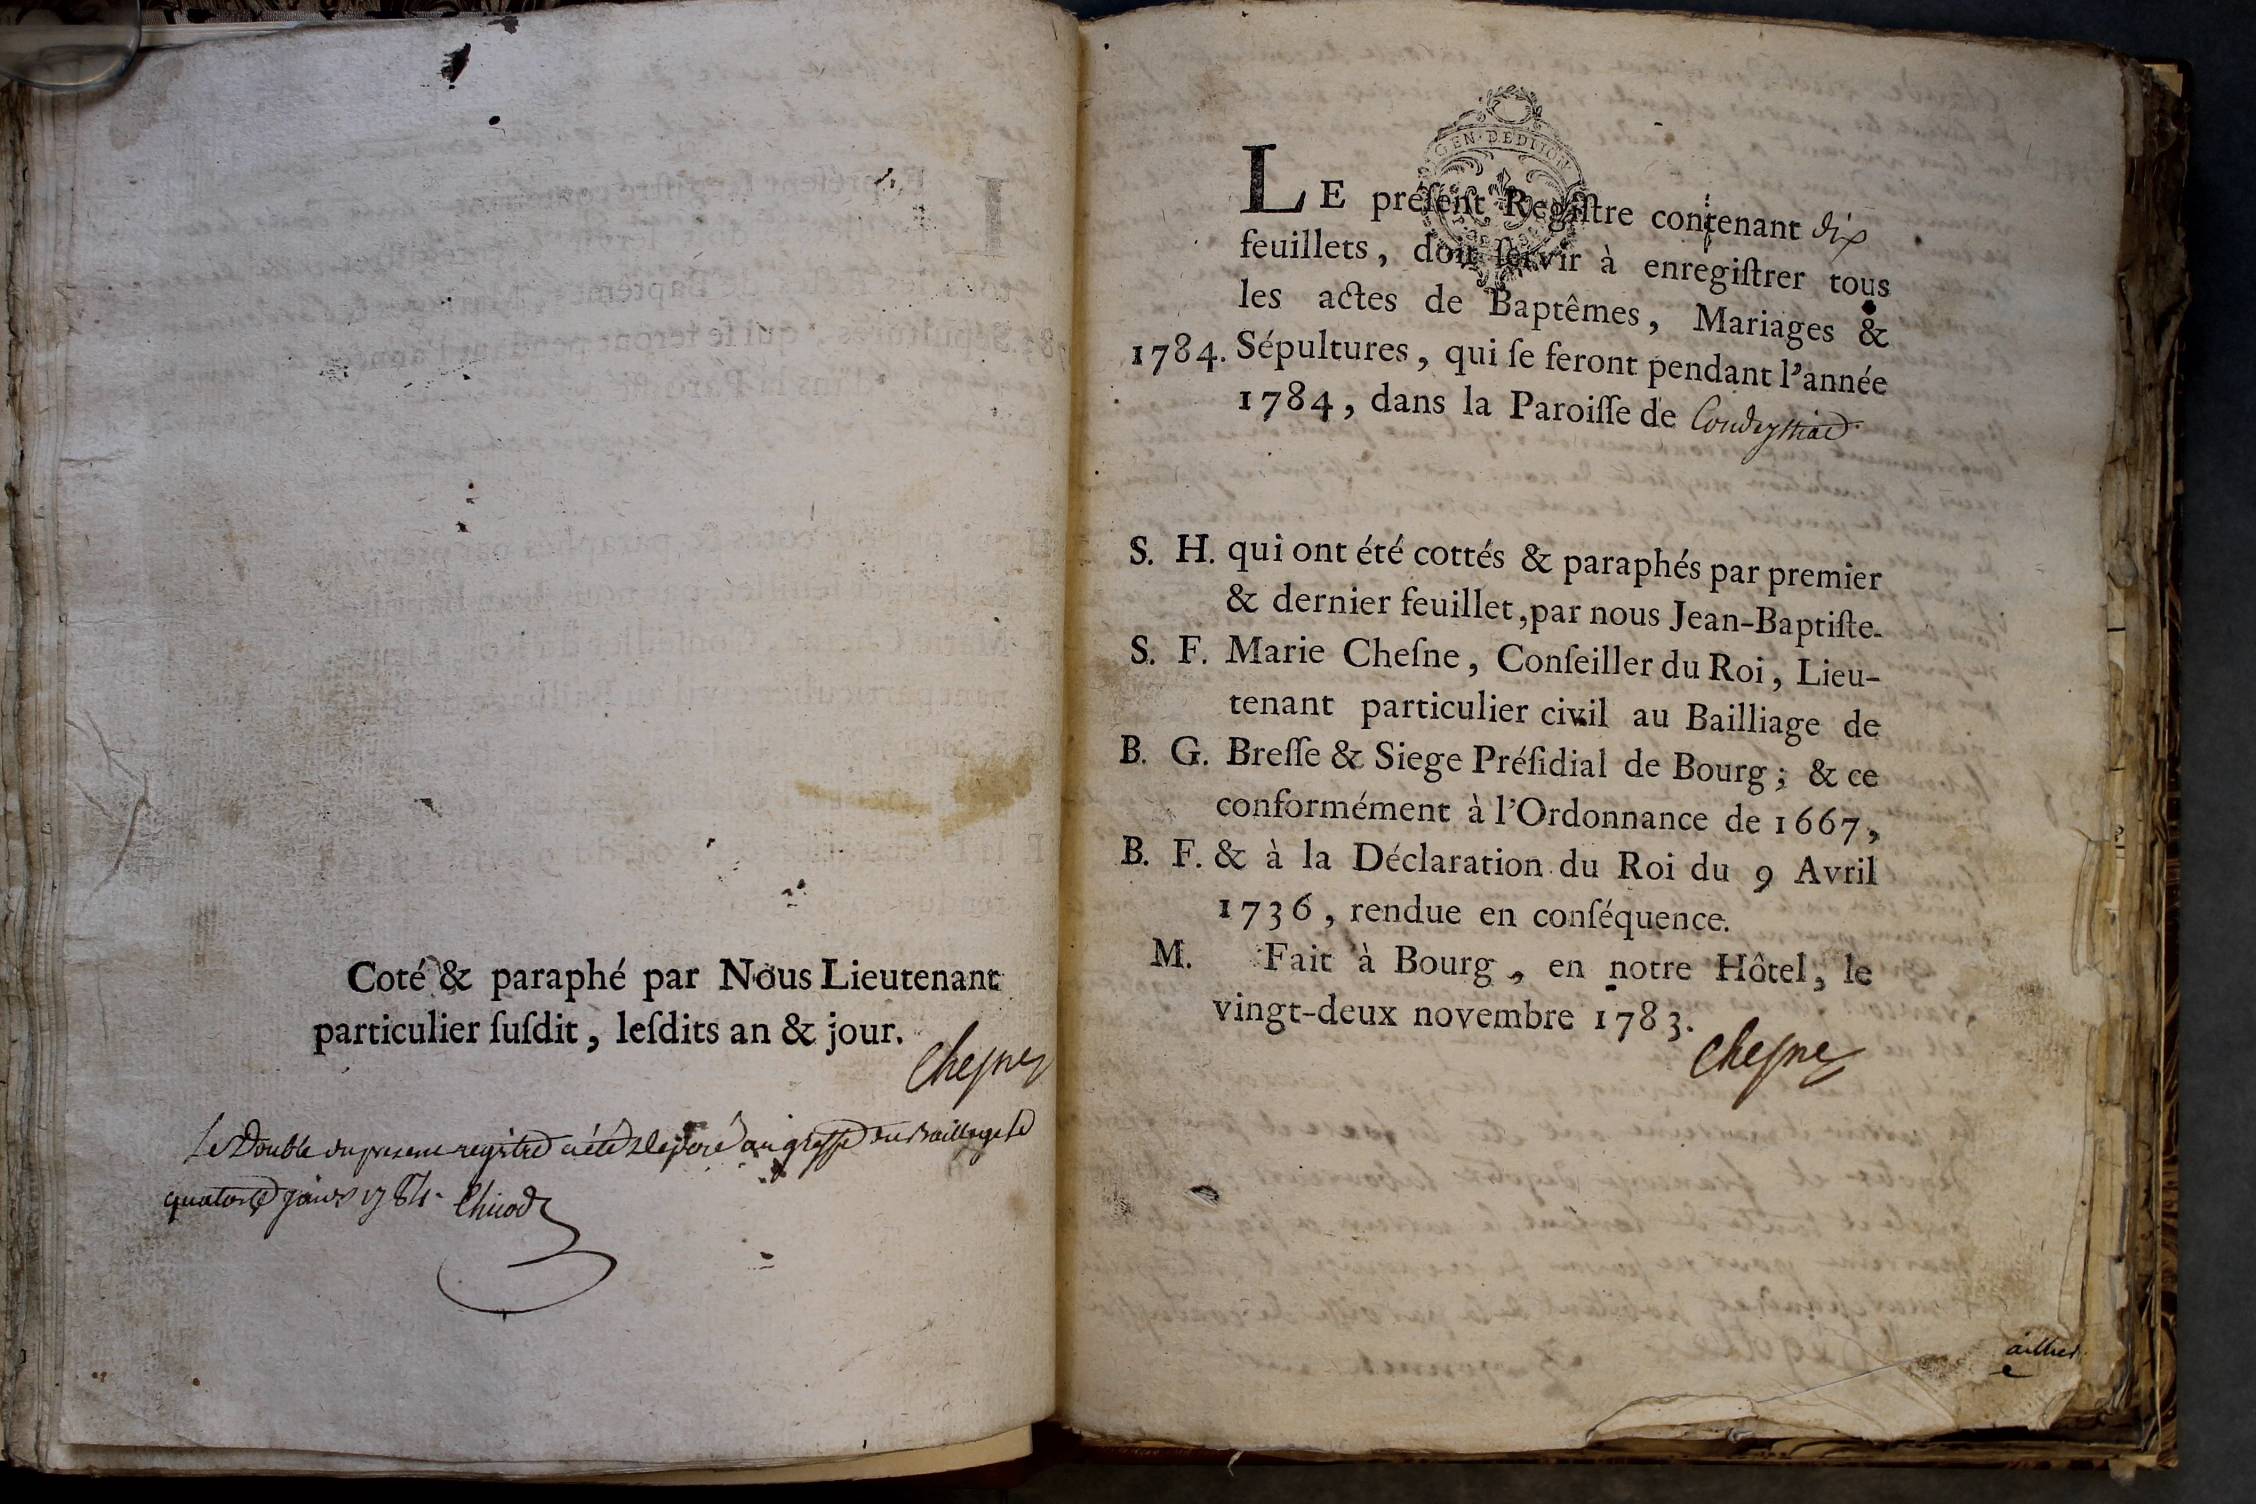 Coté & paraphé par Nous Lieutenant
particulier ſuſdit, leſdits an & jour.
Cheſne
Le Double du present registre a été déposé au greffe du Bailliage le
quatorze janvr 1784.
GEN·DEDIJON
LE préſent Regiſtre contenant dix
feuillets, doit ſervir à enregiſtrer tous
les actes de Baptêmes, Mariages &
1784. Sépultures, qui ſe feront pendant l'année
1784, dans la Paroiſſe de Condeyssiat
S. H. qui ont été cottés & paraphés par premier
& dernier feuillet, par nous Jean-Baptiſte-
S. F. Marie Cheſne, Conſeiller du Roi, Lieu-
tenant particulier civil au Bailliage de
B. G. Breſſe & Siege Préſidial de Bourg; & ce
conformément à l'Ordonnance de 1667,
B. F. & à la Déclaration du Roi du 9 Avril
1736, rendue en conſéquence.
M. Fait à Bourg, en notre Hôtel, le
vingt-deux novembre 1783.
Cheſne